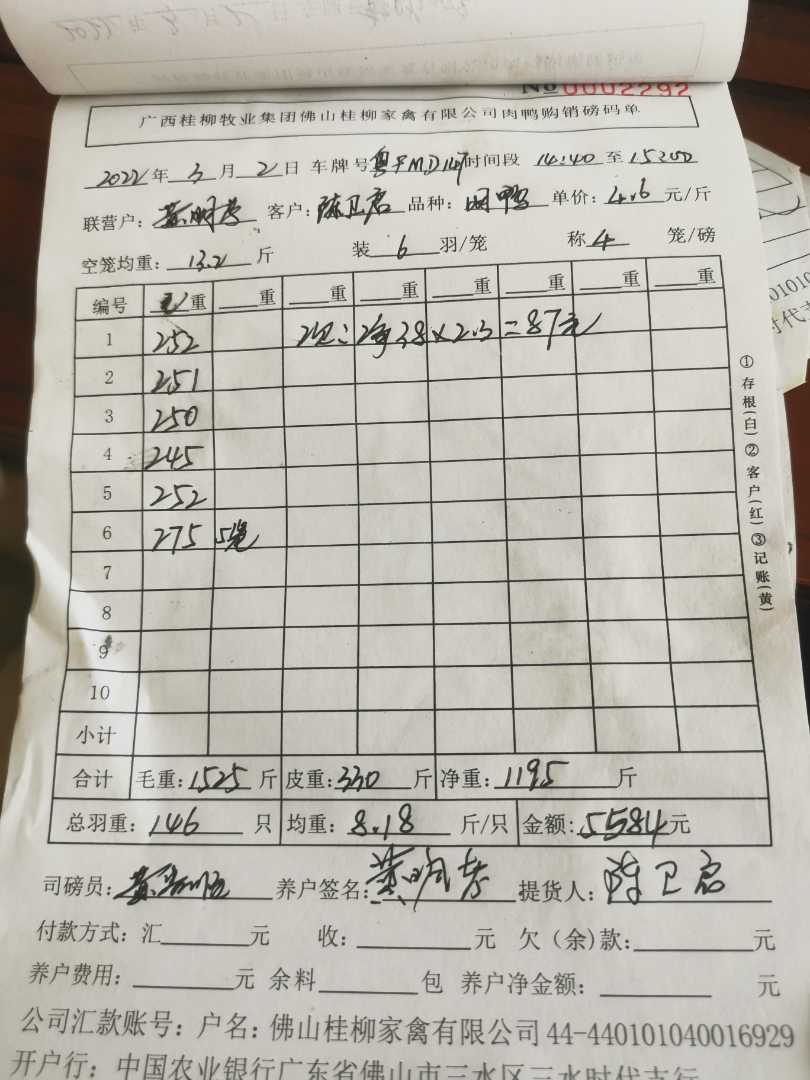 No 0002292
广西桂柳牧业集团佛山桂柳家禽有限公司肉鸭购销磅码单
2022 年 3 月 2 日 车牌号 时间段 14:40 至 15:00
联营户: 客户: 陈卫启 品种: 单价: 4.6 元/斤
空笼均重: 13.2 斤 装 6 羽/笼 称 4 笼/磅
编号 毛重 重 重 重 重 重 重 重
1 252 净38×2.3=87元
2 251
3 250
4 245
5 252
6 275 5笼
7
8
9
10
小计
合计 毛重: 1525 斤 皮重: 330 斤 净重: 1195 斤
总羽重: 146 只 均重: 8.18 斤/只 金额: 5584 元
司磅员: 养户签名: 提货人: 陈卫启
付款方式: 汇 元 收: 元 欠(余)款: 元
养户费用: 元 余料 包 养户净金额: 元
公司汇款账号: 户名: 佛山桂柳家禽有限公司 44-440101040016929
开户行: 中国农业银行广东省佛山市三水区三水时代支行
①存根(白)②客户(红)③记账(黄)